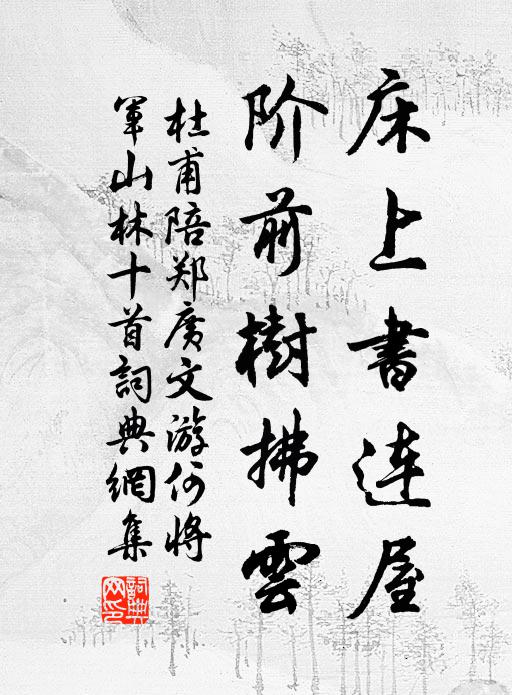 床上書连屋
阶前樹拂雲
杜甫陪郑廣文游何将
軍山林十首詞典網集
詞典網印